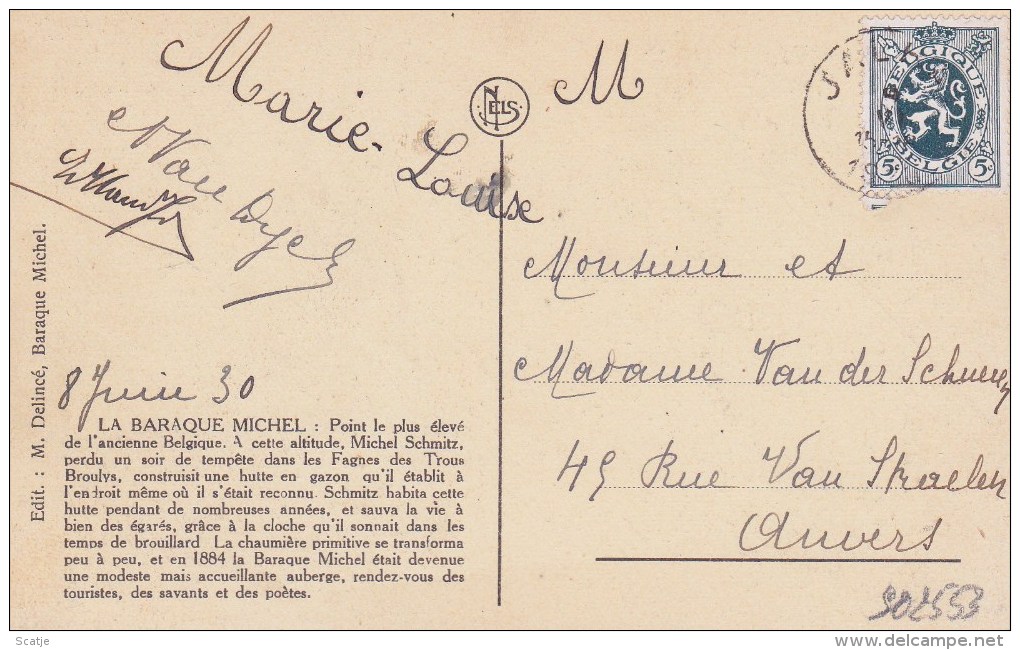 Marie-
Louise
M
Van Dyck
8 Juin 30
NELS
JAL
BELGIQUE
BELGIE
5c 5c
Monsieur et
Madame Van der Schueren
45 Rue Van Straelen
Anvers
Edit. : M. Delincé, Baraque Michel.
LA BARAQUE MICHEL : Point le plus élevé
de l'ancienne Belgique. A cette altitude, Michel Schmitz,
perdu un soir de tempête dans les Fagnes des Trous
Broulys, construisit une hutte en gazon qu'il établit à
l'endroit même où il s'était reconnu. Schmitz habita cette
hutte pendant de nombreuses années, et sauva la vie à
bien des égarés, grâce à la cloche qu'il sonnait dans les
temps de brouillard. La chaumière primitive se transforma
peu à peu, et en 1884 la Baraque Michel était devenue
une modeste mais accueillante auberge, rendez-vous des
touristes, des savants et des poètes.
902553
Scatje
delcampe.net